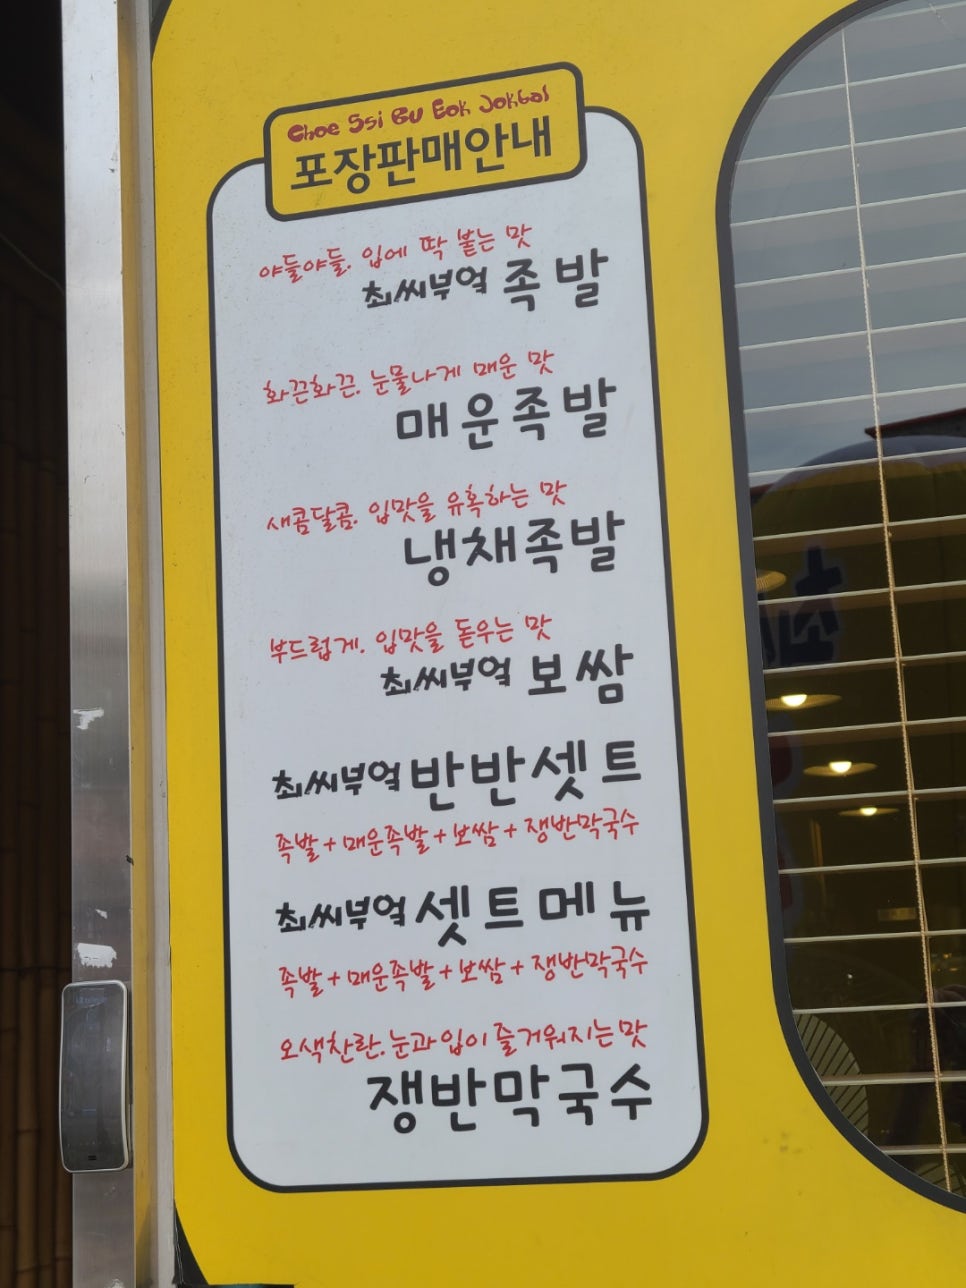 Choe Ssi Bu Eok Jokbal
포장판매안내
야들야들. 입에 딱 붙는 맛
최씨부억 족발
화끈화끈. 눈물나게 매운 맛
매운족발
새콤달콤. 입맛을 유혹하는 맛
냉채족발
부드럽게. 입맛을 돋우는 맛
최씨부억 보쌈
최씨부억 반반셋트
족발 + 매운족발 + 보쌈 + 쟁반막국수
최씨부억 셋트메뉴
족발 + 매운족발 + 보쌈 + 쟁반막국수
오색찬란. 눈과 입이 즐거워지는 맛
쟁반막국수